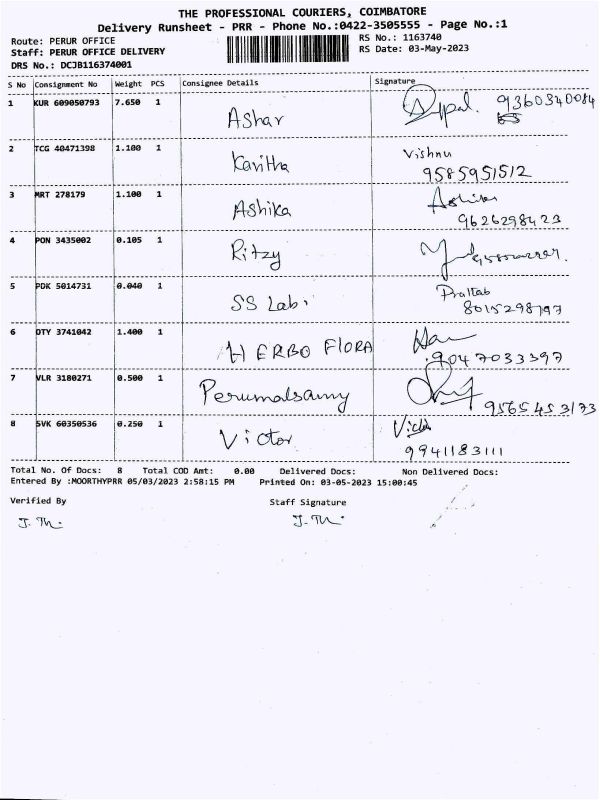 THE PROFESSIONAL COURIERS, COIMBATORE
Delivery Runsheet - PRR - Phone No.:0422-3505555 - Page No.:1
Route: PERUR OFFICE
RS No.: 1163740
Staff: PERUR OFFICE DELIVERY
RS Date: 03-May-2023
DRS No.: DCJB116374001
S No Consignment No Weight PCS Consignee Details Signature
1 KUR 609050793 7.650 1 Ashar 9360340084
2 TCG 40471398 1.100 1 Kavitha Vishnu
9585951512
3 MRT 278179 1.100 1 Ashika Ashika
9626298423
4 PON 3435002 0.105 1 Ritzy
5 PDK 5014731 0.040 1 SS Lab. Prattab
8015298797
6 DTY 3741042 1.400 1 HERBO FLORA
9047033397
7 VLR 3180271 0.500 1 Perumalsamy
9565453173
8 SVK 60350536 0.250 1 Victor Victor
9941183111
Total No. Of Docs: 8 Total COD Amt: 0.00 Delivered Docs: Non Delivered Docs:
Entered By :MOORTHYPRR 05/03/2023 2:58:15 PM Printed On: 03-05-2023 15:00:45
Verified By Staff Signature